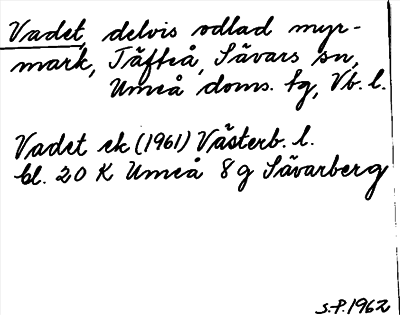 Vadet, delvis odlad myr-
mark, Täfteå, Sävars sn,
Umeå doms. tg, Vb. l.
Vadet ek (1961) Västerb. l.
bl. 20 K Umeå 8 g Sävarberg
S.P. 1962